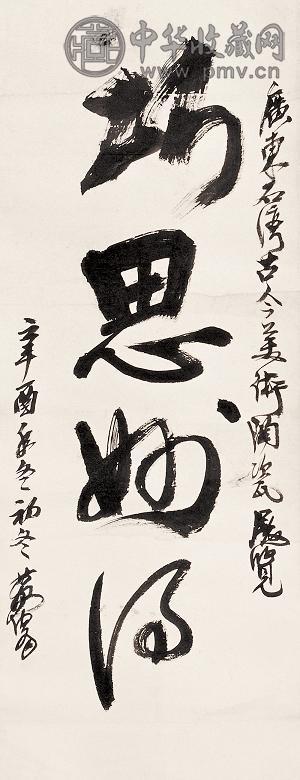 中华收藏网
www.pmv.cn
廣東石灣古今美術陶瓷展覽
巧思妙得
辛酉 冬初冬